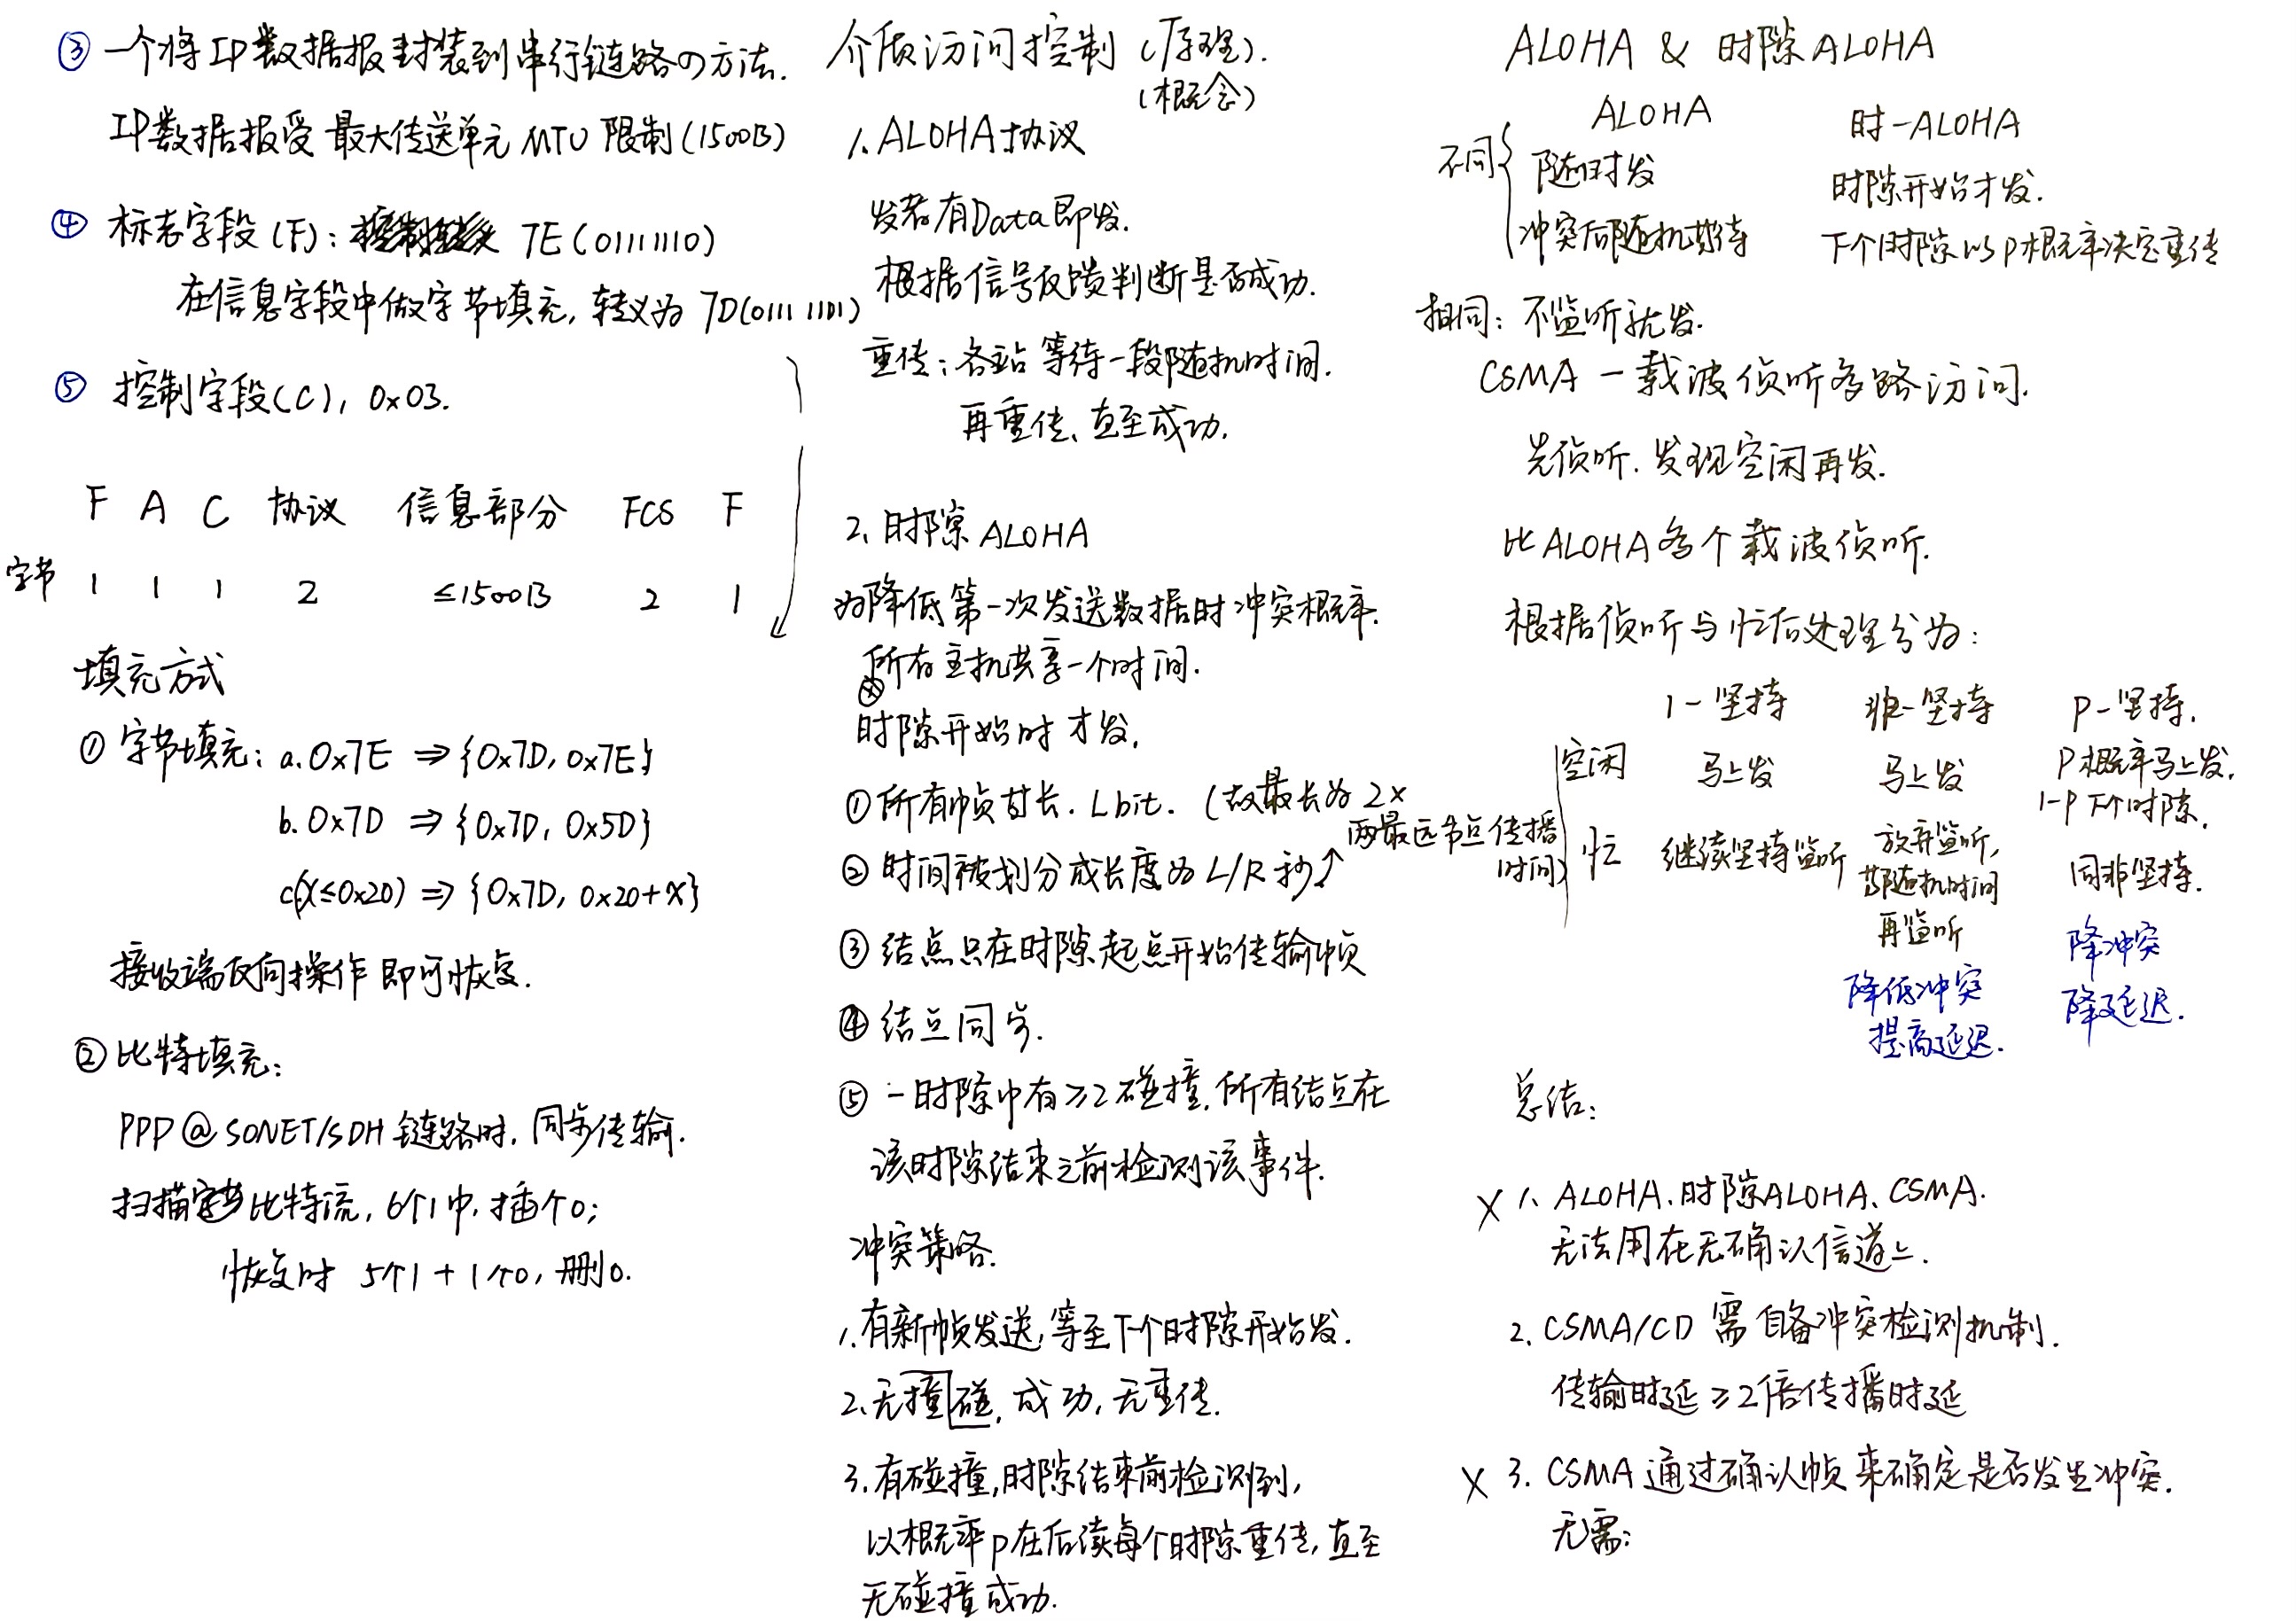 ③ 一个将IP数据报封装到串行链路の方法.
IP数据报受 最大传送单元 MTU 限制(1500B)
④ 标志字段(F): 7E(01111110)
在信息字段中做字节填充, 转义为 7D(01111101)
⑤ 控制字段(C), 0x03.
F A C 协议 信息部分 FCS F
字节 1 1 1 2 ≤1500B 2 1
填充方式
① 字节填充: a. 0x7E ⇒ {0x7D, 0x7E}
b. 0x7D ⇒ {0x7D, 0x5D}
c(x≤0x20) ⇒ {0x7D, 0x20+x}
接收端反向操作即可恢复.
② 比特填充:
PPP@SONET/SDH 链路时. 同步传输.
扫描 比特流, 6个1中, 插个0;
恢复时 5个1 + 1个0, 删0.
介质访问控制 (原理).
(概念)
1. ALOHA协议
发者有Data即发.
根据信号反馈判断是否成功.
重传: 各站 等待一段随机时间.
再重传、直至成功.
2. 时隙 ALOHA
为降低第一次发送数据时冲突概率.
所有主机共享一个时间.
时隙开始时 才发.
① 所有帧 长. L bit. (故最长为 2×
两最远节点传播
时间)
② 时间被划分成长度为 L/R 秒↑
③ 结点只在时隙起点开始传输帧
④ 结点同步.
⑤ 一时隙中有≥2碰撞, 所有结点在
该时隙结束之前检测该事件.
冲突策略.
1. 有新帧发送, 等至下个时隙开始发.
2. 无撞碰, 成功, 无重传.
3. 有碰撞, 时隙结束前检测到,
以概率p在后续每个时隙重传, 直至
无碰撞成功.
ALOHA & 时隙ALOHA
ALOHA 时-ALOHA
不同 随时发 时隙开始才发.
冲突后随机 待 下个时隙以p概率决定重传
相同: 不监听就发.
CSMA — 载波侦听多路访问.
先侦听. 发现空闲再发.
比ALOHA多个载波侦听.
根据侦听与忙后处理分为:
1-坚持 非-坚持 P-坚持.
空闲 马上发 马上发 P概率马上发,
1-P 下个时隙.
忙 继续坚持监听 放弃监听, 同非坚持.
随机时间
再监听
降低冲突
提高延迟.
降冲突
降延迟.
总结:
× 1. ALOHA、时隙ALOHA、CSMA.
无法用在无确认信道上.
2. CSMA/CD 需自备冲突检测机制.
传输时延≥2倍传播时延
× 3. CSMA 通过确认帧来确定是否发生冲突.
无需;